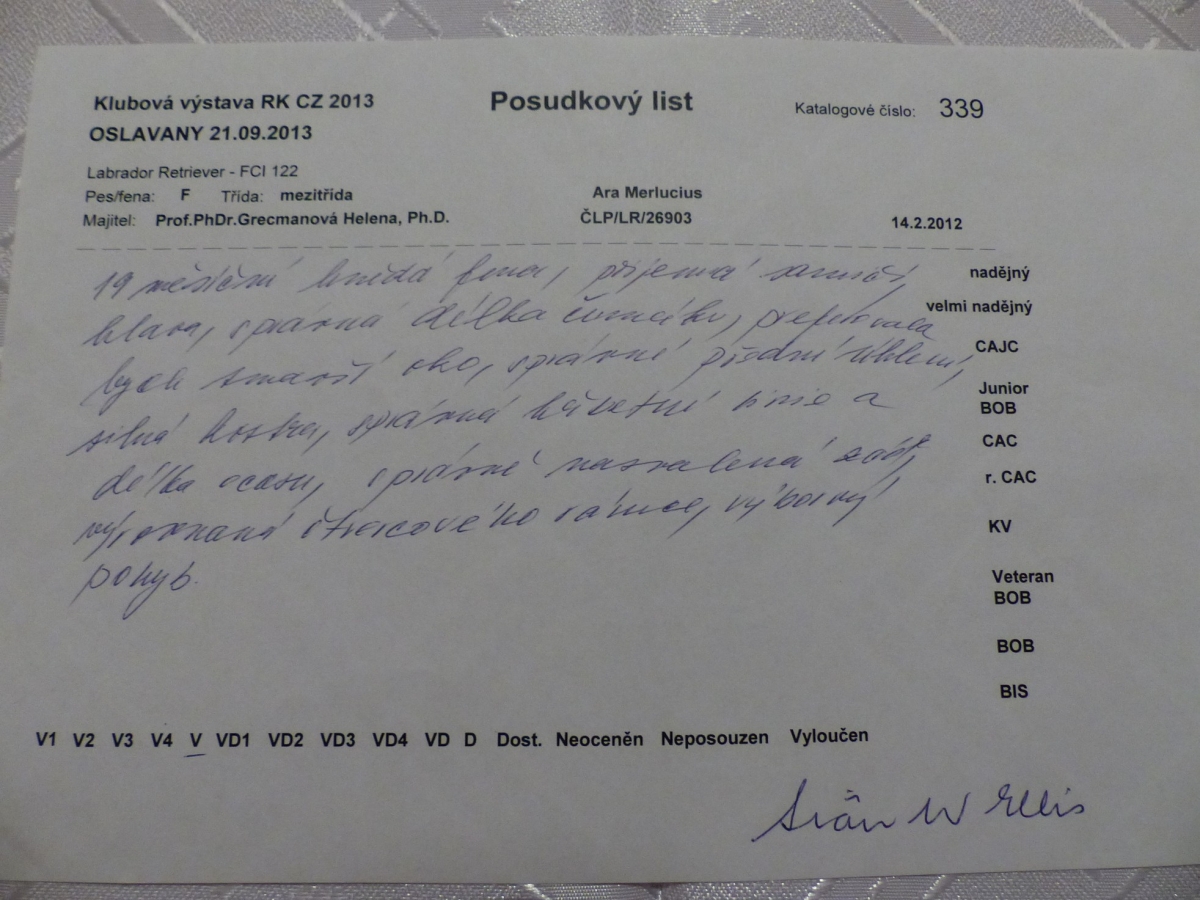 Klubová výstava RK CZ 2013
Posudkový list
Katalogové číslo: 339
OSLAVANY 21.09.2013
Labrador Retriever - FCI 122
Pes/fena: F Třída: mezitřída
Ara Merlucius
Majitel: Prof.PhDr.Grecmanová Helena, Ph.D.
ČLP/LR/26903
14.2.2012
19 měsíční hnědá fena, příjemná samičí
hlava, správná délka čumáku, preferovala
bych tmavší oko, správné přední úhlení,
silná kostra, správná hřbetní linie a
délka ocasu, správně nasvalená záď,
vyrovnaná čtvercového rámce, výborný
pohyb.
nadějný
velmi nadějný
CAJC
Junior
BOB
CAC
r. CAC
KV
Veteran
BOB
BOB
BIS
V1 V2 V3 V4 V VD1 VD2 VD3 VD4 VD D Dost. Neoceněn Neposouzen Vyloučen
Siân W Ellis